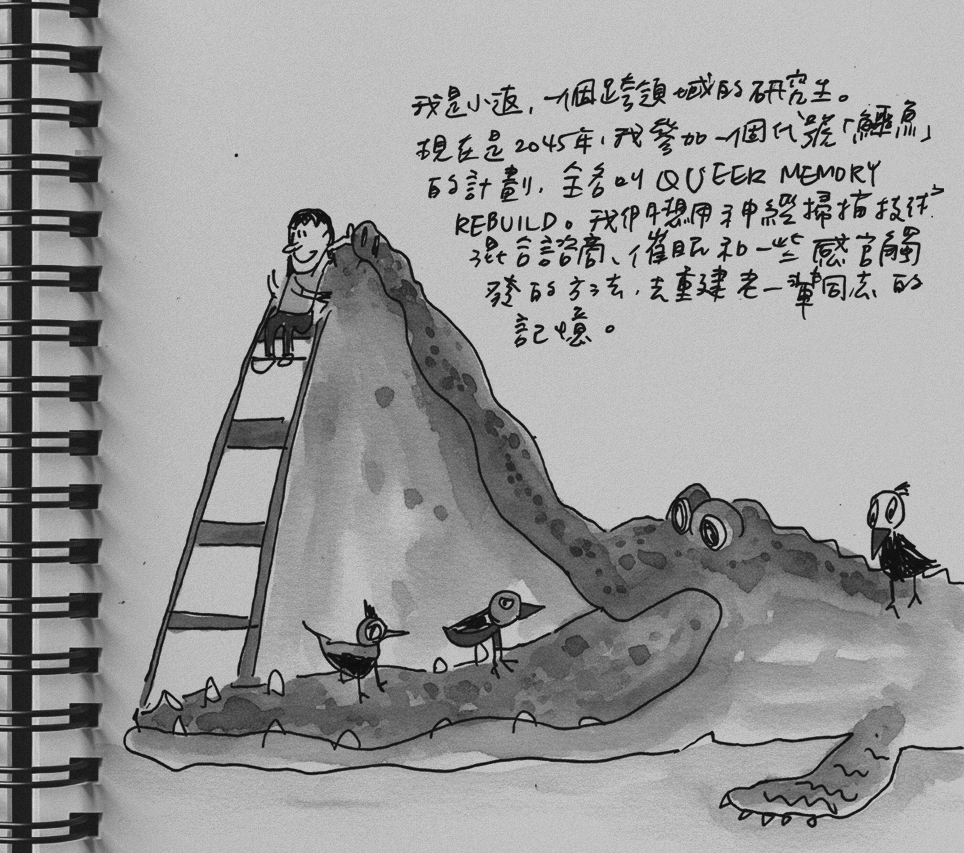 我是小返，一個跨領域的研究生。
現在是2045年，我參加一個代號「鱷魚」
的計劃，全名叫 QUEER MEMORY
REBUILD。我們想用神經掃描技術，
混合諮商、催眠和一些感官觸
發的方法，去重建老一輩同志的
記憶。